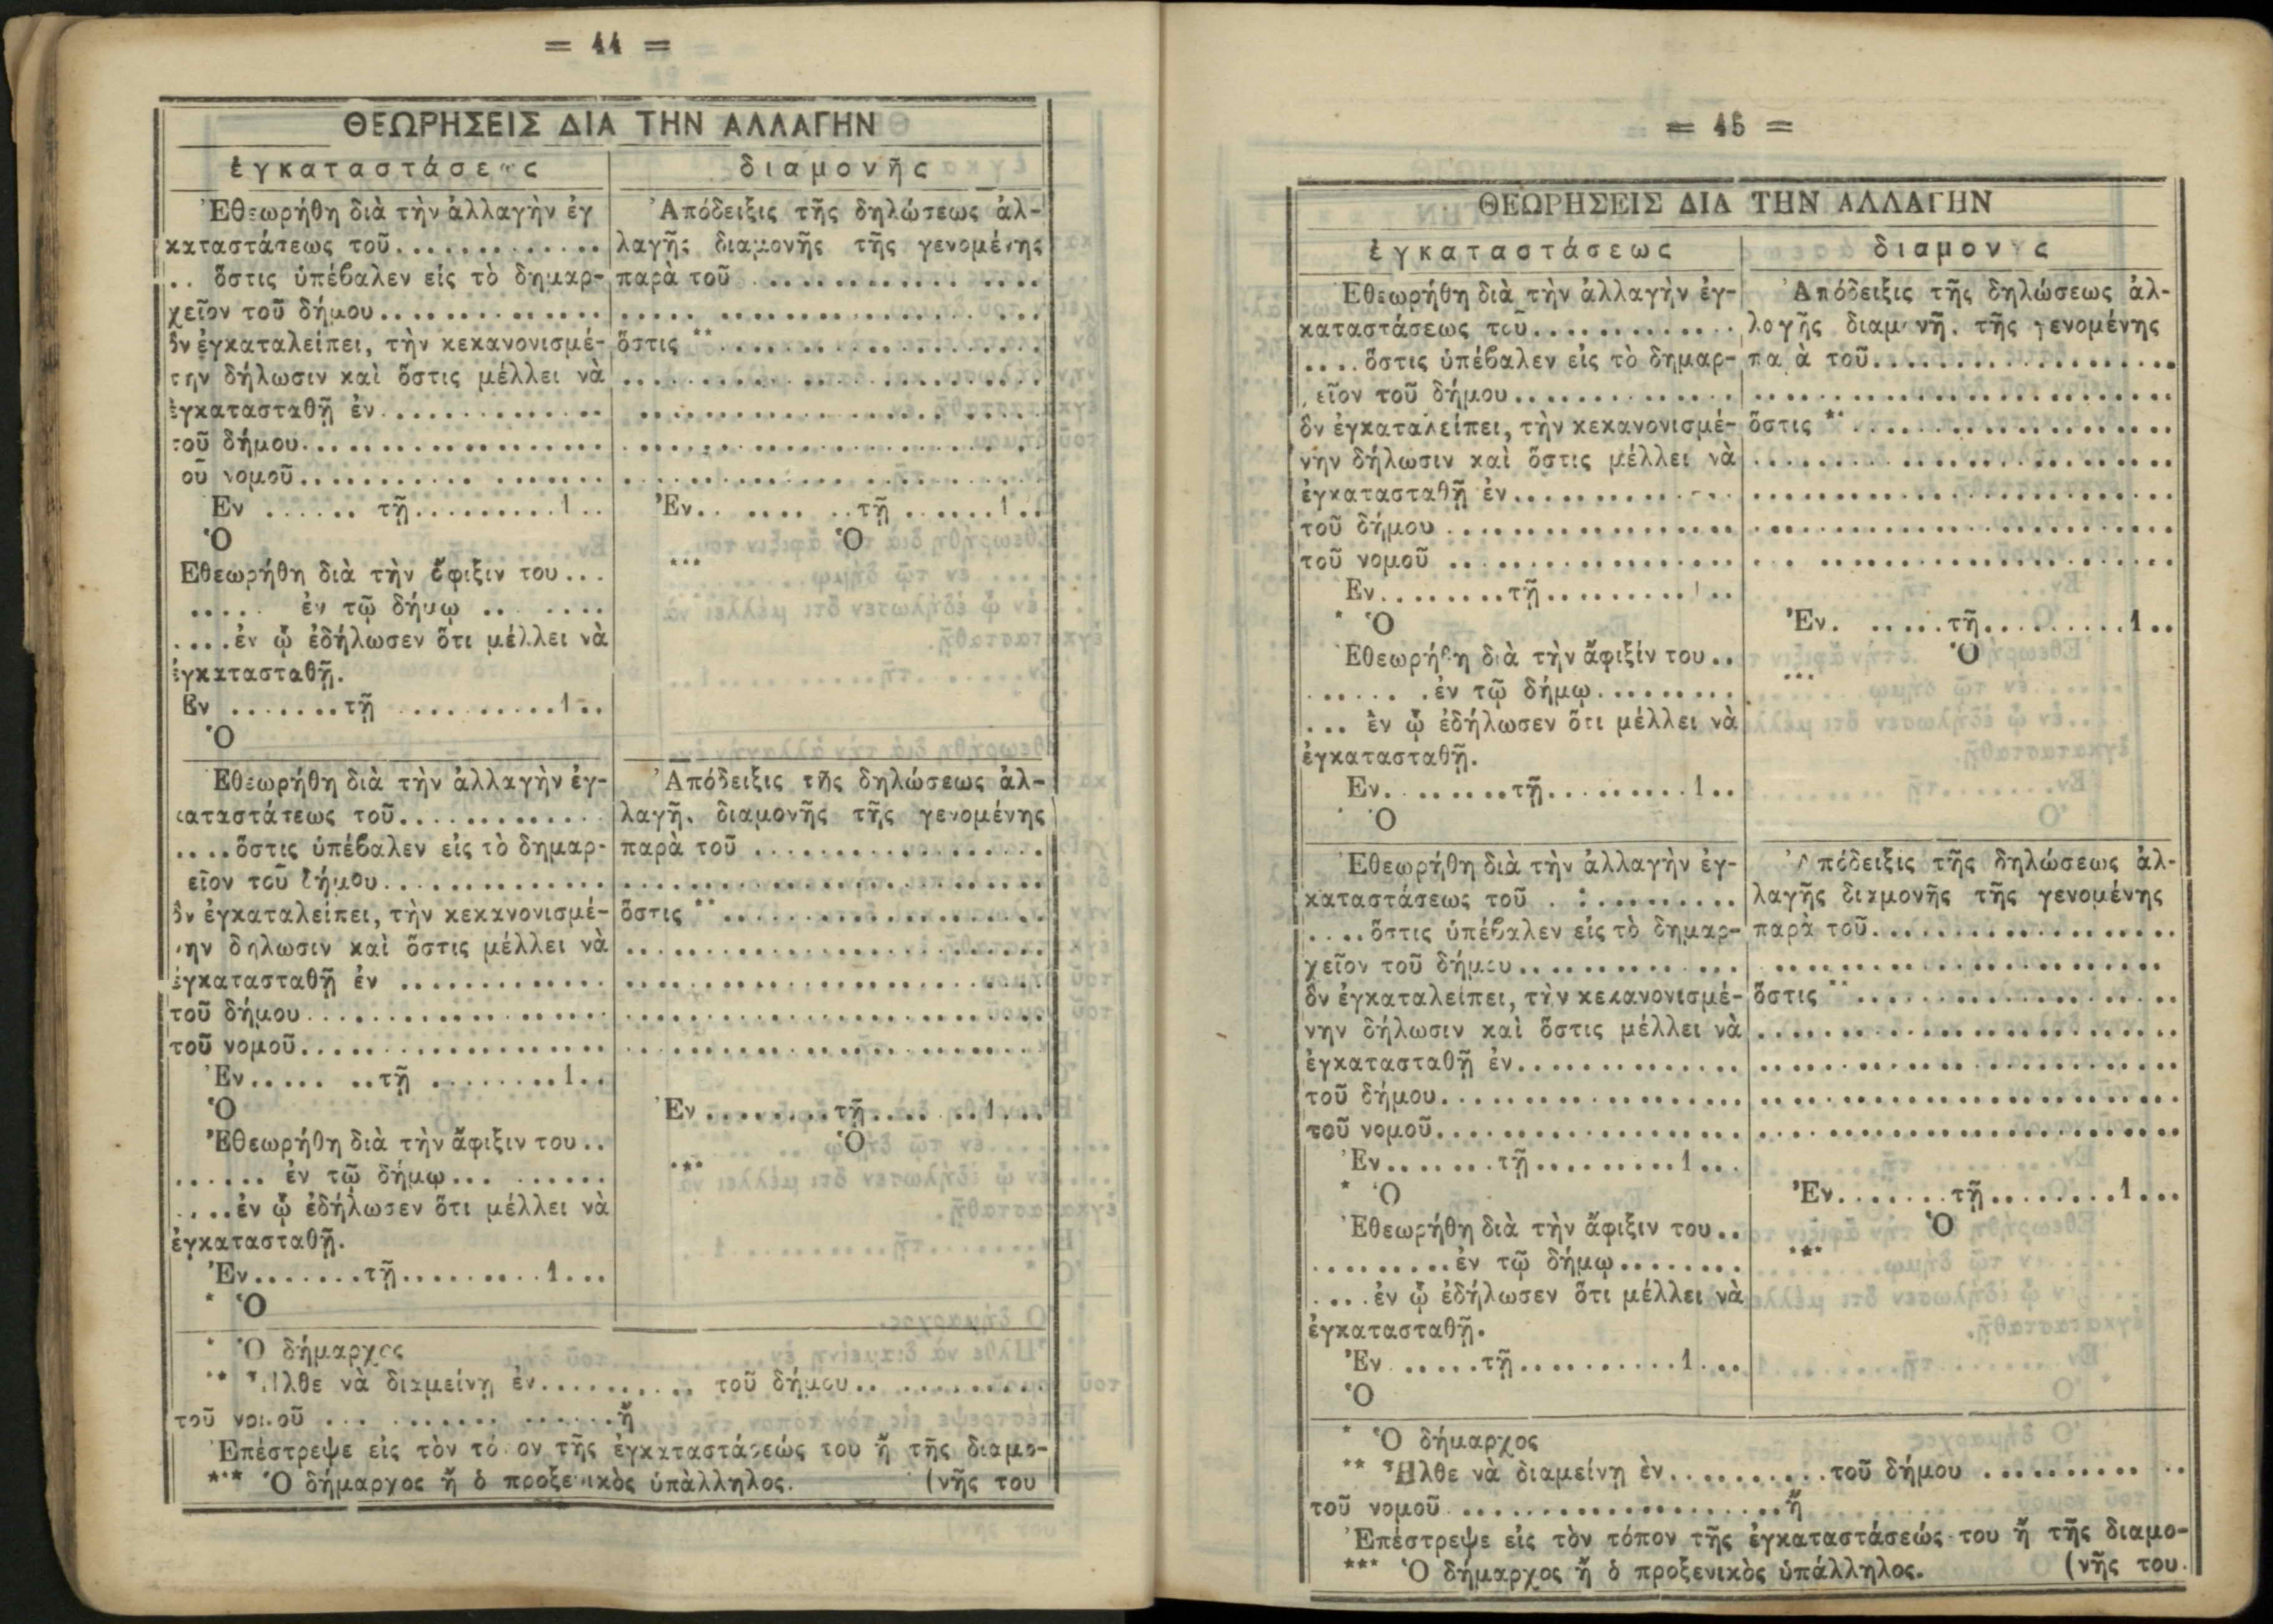 = 44 =
ΘΕΩΡΗΣΕΙΣ ΔΙΑ ΤΗΝ ΑΛΛΑΓΗΝ
ἐγκαταστάσε ς
Ἐθεωρήθη διὰ τὴν ἀλλαγὴν ἐγ
καταστάσεως τοῦ.............
.. ὅστις ὑπέβαλεν εἰς τὸ δημαρ-
χεῖον τοῦ δήμου..............
ὃν ἐγκαταλείπει, τὴν κεκανονισμέ-
την δήλωσιν καὶ ὅστις μέλλει νὰ
ἐγκατασταθῇ ἐν..............
τοῦ δήμου...................
οῦ νομοῦ........... .......
Εν ...... τῇ.........1..
Ὁ
Εθεωρήθη διὰ τὴν ἄφιξιν του...
..... ἐν τῷ δήμῳ .. ....
....ἐν ᾧ ἐδήλωσεν ὅτι μέλλει νὰ
ἐγκατασταθῇ.
Εν .......τῇ ..........1..
Ὁ
Εθεωρήθη διὰ τὴν ἀλλαγὴν ἐγ-
καταστάσεως τοῦ.............
....ὅστις ὑπέβαλεν εἰς τὸ δημαρ-
εῖον τοῦ δήμου..............
ὃν ἐγκαταλείπει, τὴν κεκανονισμέ-
νην δηλωσιν καὶ ὅστις μέλλει νὰ
ἐγκατασταθῇ ἐν .............
τοῦ δήμου...................
τοῦ νομοῦ...................
Ἐν..... ..τῇ ........1..
Ὁ
Ἐθεωρήθη διὰ τὴν ἄφιξιν του..
...... ἐν τῷ δήμῳ... ......
....ἐν ᾧ ἐδήλωσεν ὅτι μέλλει νὰ
ἐγκατασταθῇ.
Ἐν.......τῇ.........1...
* Ὁ
διαμονῆς
Ἀπόδειξις τῆς δηλώσεως ἀλ-
λαγῆς διαμονῆς τῆς γενομένης
παρὰ τοῦ ............. ....
..... .................. ...
ὅστις **....................
..........................
.........................
.........................
..........................
Ἐν.. .... ..τῇ ......1..
Ὁ
***
Ἀπόδειξις τῆς δηλώσεως ἀλ-
λαγῆ. διαμονῆς τῆς γενομένης
παρὰ τοῦ ..................
..........................
ὅστις **....................
..........................
..........................
..........................
..........................
Ἐν........τῇ.... ..1...
Ὁ
***
* Ὁ δήμαρχος
** λθε νὰ διαμείνῃ ἐν.......... τοῦ δήμου.. ..........
τοῦ νομοῦ ... ....... ......ἢ
Ἐπέστρεψε εἰς τὸν τό ον τῆς ἐγκαταστάσεώς του ἢ τῆς διαμο-
*** Ὁ δήμαρχος ἢ ὁ προξενικὸς ὑπὰλληλος. (νῆς του
= 45 =
ΘΕΩΡΗΣΕΙΣ ΔΙΑ ΤΗΝ ΑΛΛΑΓΗΝ
ἐγκαταστάσεως
Ἐθεωρήθη διὰ τὴν ἀλλαγὴν ἐγ-
καταστάσεως τοῦ.............
....ὅστις ὑπέβαλεν εἰς τὸ δημαρ-
εῖον τοῦ δήμου..............
ὃν ἐγκαταλείπει, τὴν κεκανονισμέ-
νην δήλωσιν καὶ ὅστις μέλλει νὰ
ἐγκατασταθῇ ἐν..............
τοῦ δήμου ..................
τοῦ νομοῦ ..................
Ἐν........τῇ.........1..
* Ὁ
Ἐθεωρήθη διὰ τὴν ἄφιξίν του..
...... .ἐν τῷ δήμῳ.........
... ἐν ᾧ ἐδήλωσεν ὅτι μέλλει νὰ
ἐγκατασταθῇ.
Ἐν. .......τῇ.........1..
Ὁ
Ἐθεωρήθη διὰ τὴν ἀλλαγὴν ἐγ-
καταστάσεως τοῦ . :.........
....ὅστις ὑπέβαλεν εἰς τὸ δημαρ-
χεῖον τοῦ δήμου..............
ὃν ἐγκαταλείπει, τὴν κεκανονισμέ-
νην δήλωσιν καὶ ὅστις μέλλει νὰ
ἐγκατασταθῇ ἐν..............
τοῦ δήμου...................
τοῦ νομοῦ...................
Ἐν.......τῇ.........1...
* Ὁ
Ἐθεωρήθη διὰ τὴν ἄφιξιν του..
.........ἐν τῷ δήμῳ........
....ἐν ᾧ ἐδήλωσεν ὅτι μέλλει νὰ
ἐγκατασταθῇ.
Ἐν ......τῇ..........1...
Ὁ
διαμον ς
Ἀπόδειξις τῆς δηλώσεως ἀλ-
λογῆς διαμ νῆ. τῆς γενομένης
πα ὰ τοῦ...................
..........................
ὅστις **....................
..........................
..........................
..........................
... ......................
Ἐν. .....τῇ.........1..
Ὁ
***
Ἀπόδειξις τῆς δηλώσεως ἀλ-
λαγῆς διαμονῆς τῆς γενομένης
παρὰ τοῦ...................
.........................
ὅστις **....................
..........................
..........................
..........................
..........................
Ἐν.......τῇ........1...
Ὁ
***
* Ὁ δήμαρχος
** Ἦλθε νὰ διαμείνῃ ἐν..........τοῦ δήμου .......... ..
τοῦ νομοῦ ....................ἢ
Ἐπέστρεψε εἰς τὸν τόπον τῆς ἐγκαταστάσεώς του ἢ τῆς διαμο-
*** Ὁ δήμαρχος ἢ ὁ προξενικὸς ὑπάλληλος. (νῆς του.